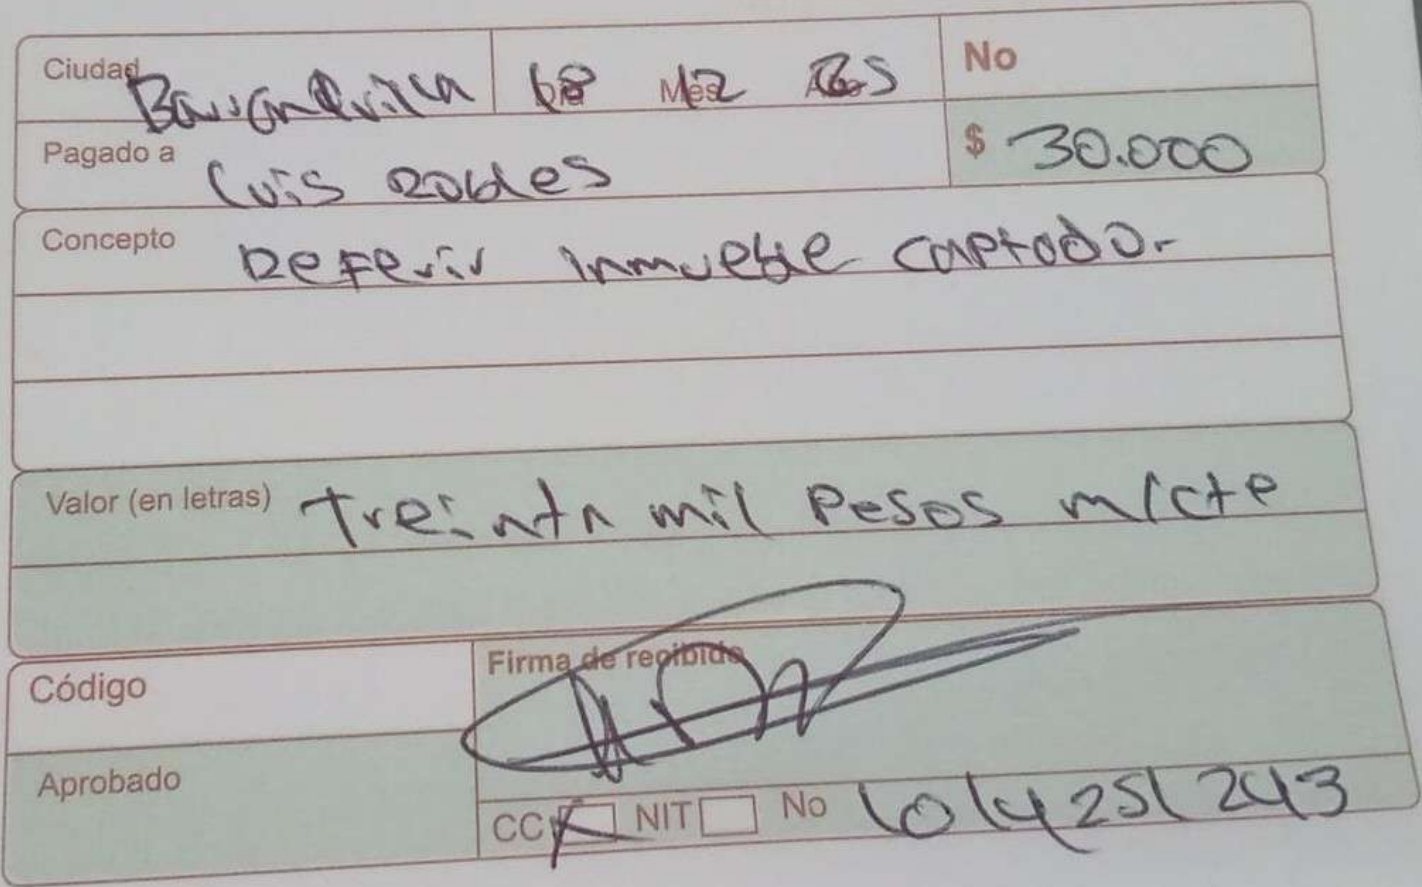 Ciudad Barranquilla 18 Mes 12 No
Pagado a Luis Robles $ 30.000
Concepto Referir inmueble captado.
Valor (en letras) Treinta mil Pesos m/cte
Código Firma de recibido
Aprobado
CC X NIT No 1014251243